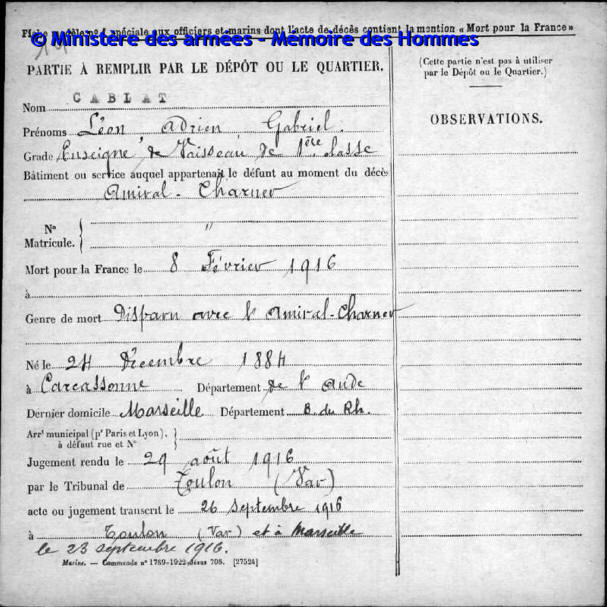 Fiche modèle n° 1 spéciale aux officiers et marins dont l'acte de décès contient la mention « Mort pour la France »
© Ministère des armées - Mémoire des Hommes
PARTIE À REMPLIR PAR LE DÉPÔT OU LE QUARTIER.
CABLAT
Nom
Prénoms Léon, Adrien, Gabriel.
Grade Enseigne de Vaisseau de 1ère classe
Bâtiment ou service auquel appartenait le défunt au moment du décès
Amiral-Charner
Nº
Matricule. "
Mort pour la France le 8 Février 1916
à
Genre de mort Disparu avec l'Amiral-Charner
Né le 24 Décembre 1884
à Carcassonne Département de l'Aude
Dernier domicile Marseille Département B. du Rh.
Arrt municipal (pr Paris et Lyon),
à défaut rue et Nº
Jugement rendu le 29 août 1916
par le Tribunal de Toulon (Var)
acte ou jugement transcrit le 26 Septembre 1916
à Toulon (Var) et à Marseille
le 23 septembre 1916.
Marine. — Commande nº 1789-1922 dessus 708. [27524]
(Cette partie n'est pas à utiliser
par le Dépôt ou le Quartier.)
OBSERVATIONS.